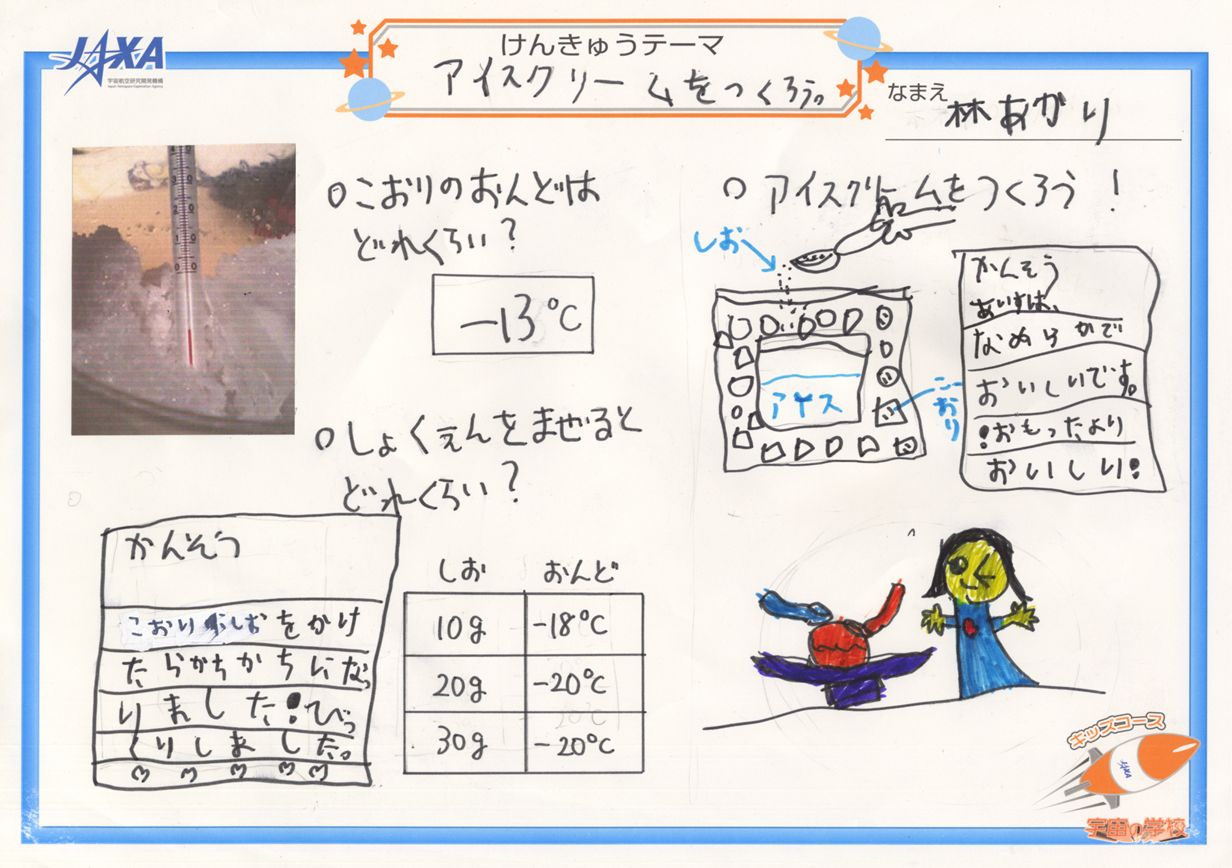 JAXA
宇宙航空研究開発機構
Japan Aerospace Exploration Agency
けんきゅうテーマ
アイスクリームをつくろう。
なまえ
林あかり
○こおりのおんどは
どれくらい?
-13℃
○しょくえんをまぜると
どれくらい?
かんそう
こおりにしおをかけ
たらかちかちにな
りました!びっ
くりしました。
しお おんど
10g -18℃
20g -20℃
30g -20℃
○アイスクリームをつくろう!
しお
アイス
こおり
かんそう
あいすは、
なめらかで
おいしいです。
!おもったより
おいしい!
キッズコース
JAXA
宇宙の学校